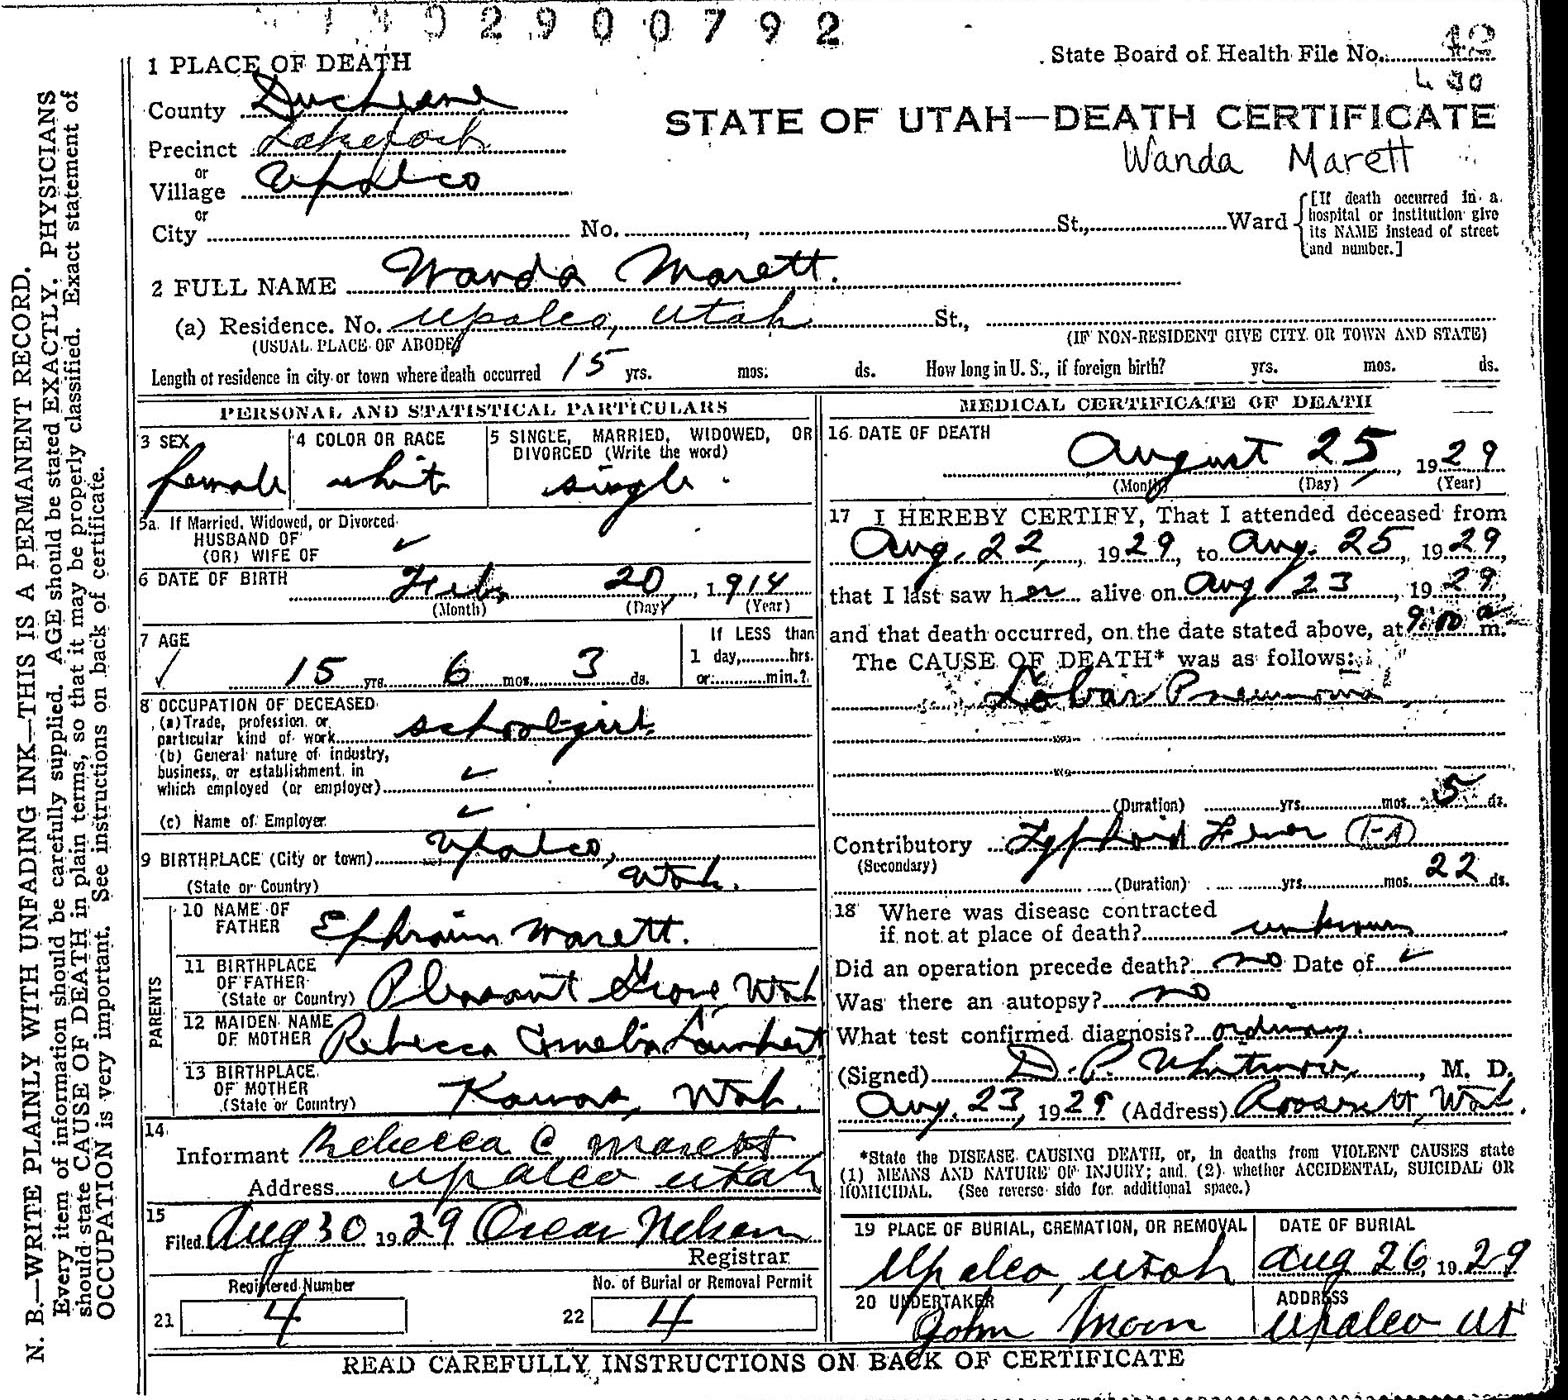 2900792
State Board of Health File No. 42
430
1 PLACE OF DEATH
County Duchesne
STATE OF UTAH—DEATH CERTIFICATE
Precinct Lakefork
Wanda Marett
or
Village Upalco
or
City No. , St., Ward
[If death occurred in a hospital or institution give its NAME instead of street and number.]
2 FULL NAME Wanda Marett.
(a) Residence. No. Upalco, Utah St.,
(USUAL PLACE OF ABODE)
(IF NON-RESIDENT GIVE CITY OR TOWN AND STATE)
Length of residence in city or town where death occurred 15 yrs. mos. ds. How long in U. S., if foreign birth? yrs. mos. ds.
PERSONAL AND STATISTICAL PARTICULARS
3 SEX
female
4 COLOR OR RACE
whit
5 SINGLE, MARRIED, WIDOWED, OR DIVORCED (Write the word)
single.
5a If Married, Widowed, or Divorced
HUSBAND OF
(OR) WIFE OF ✓
6 DATE OF BIRTH Feb. 20, 1914
(Month) (Day) (Year)
7 AGE
✓ 15 yrs. 6 mos. 3 ds.
If LESS than
1 day,........hrs.
or........min.?
8 OCCUPATION OF DECEASED
(a) Trade, profession or
particular kind of work schoolgirl.
(b) General nature of industry,
business, or establishment in
which employed (or employer) ✓
(c) Name of Employer ✓
9 BIRTHPLACE (City or town) Upalco,
(State or Country) Utah.
PARENTS
10 NAME OF
FATHER Ephraim Marett.
11 BIRTHPLACE
OF FATHER
(State or Country) Pleasant Grove, Utah
12 MAIDEN NAME
OF MOTHER Rebecca Amelia Lambert
13 BIRTHPLACE
OF MOTHER
(State or Country) Kamas, Utah.
14
Informant Rebecca C Marett
Address Upalco Utah
15
Filed Aug 30 1929 Oscar Nelson
Registrar
Registered Number
21 4
No. of Burial or Removal Permit
22 4
MEDICAL CERTIFICATE OF DEATH
16 DATE OF DEATH
August 25, 1929
(Month) (Day) (Year)
17 I HEREBY CERTIFY, That I attended deceased from
Aug. 22, 1929, to Aug. 25, 1929,
that I last saw her alive on Aug 23, 1929,
and that death occurred, on the date stated above, at 9:00 a m.
The CAUSE OF DEATH* was as follows:
Lobar Pneumonia
(Duration) yrs. mos. 5 ds.
Contributory Typhoid Fever (1-A)
(Secondary)
(Duration) yrs. mos. 22 ds.
18 Where was disease contracted
if not at place of death? unknown
Did an operation precede death? no Date of ✓
Was there an autopsy? no
What test confirmed diagnosis? ordinary.
(Signed) D. P. Whitmore, M. D.
Aug. 23, 1929 (Address) Roosevelt, Utah.
*State the DISEASE CAUSING DEATH, or, in deaths from VIOLENT CAUSES state
(1) MEANS AND NATURE OF INJURY; and (2) whether ACCIDENTAL, SUICIDAL OR
HOMICIDAL. (See reverse side for additional space.)
19 PLACE OF BURIAL, CREMATION, OR REMOVAL
Upalco, Utah
DATE OF BURIAL
Aug 26, 1929
20 UNDERTAKER
John Moon
ADDRESS
Upalco Ut
READ CAREFULLY INSTRUCTIONS ON BACK OF CERTIFICATE
N. B.—WRITE PLAINLY WITH UNFADING INK—THIS IS A PERMANENT RECORD.
Every item of information should be carefully supplied. AGE should be stated EXACTLY. PHYSICIANS
should state CAUSE OF DEATH in plain terms, so that it may be properly classified. Exact statement of
OCCUPATION is very important. See instructions on back of certificate.